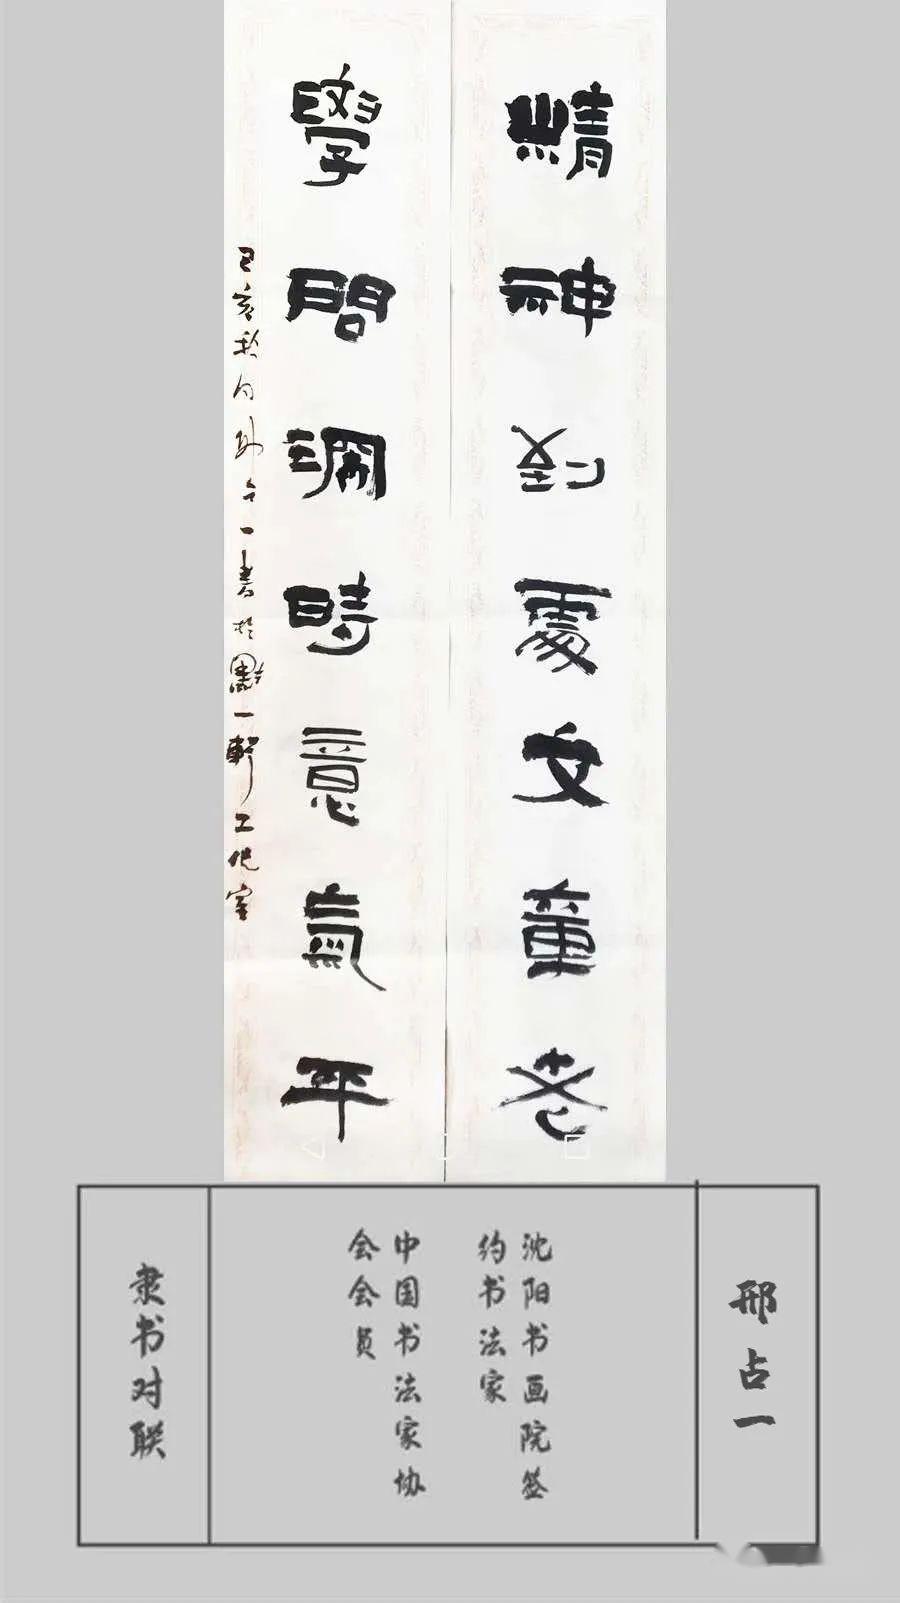 精神到處文章老
學問深時意氣平
己亥秋月邢占一書於一軒工作室
邢占一
沈阳书画院签
约书法家
中国书法家协
会会员
隶书对联